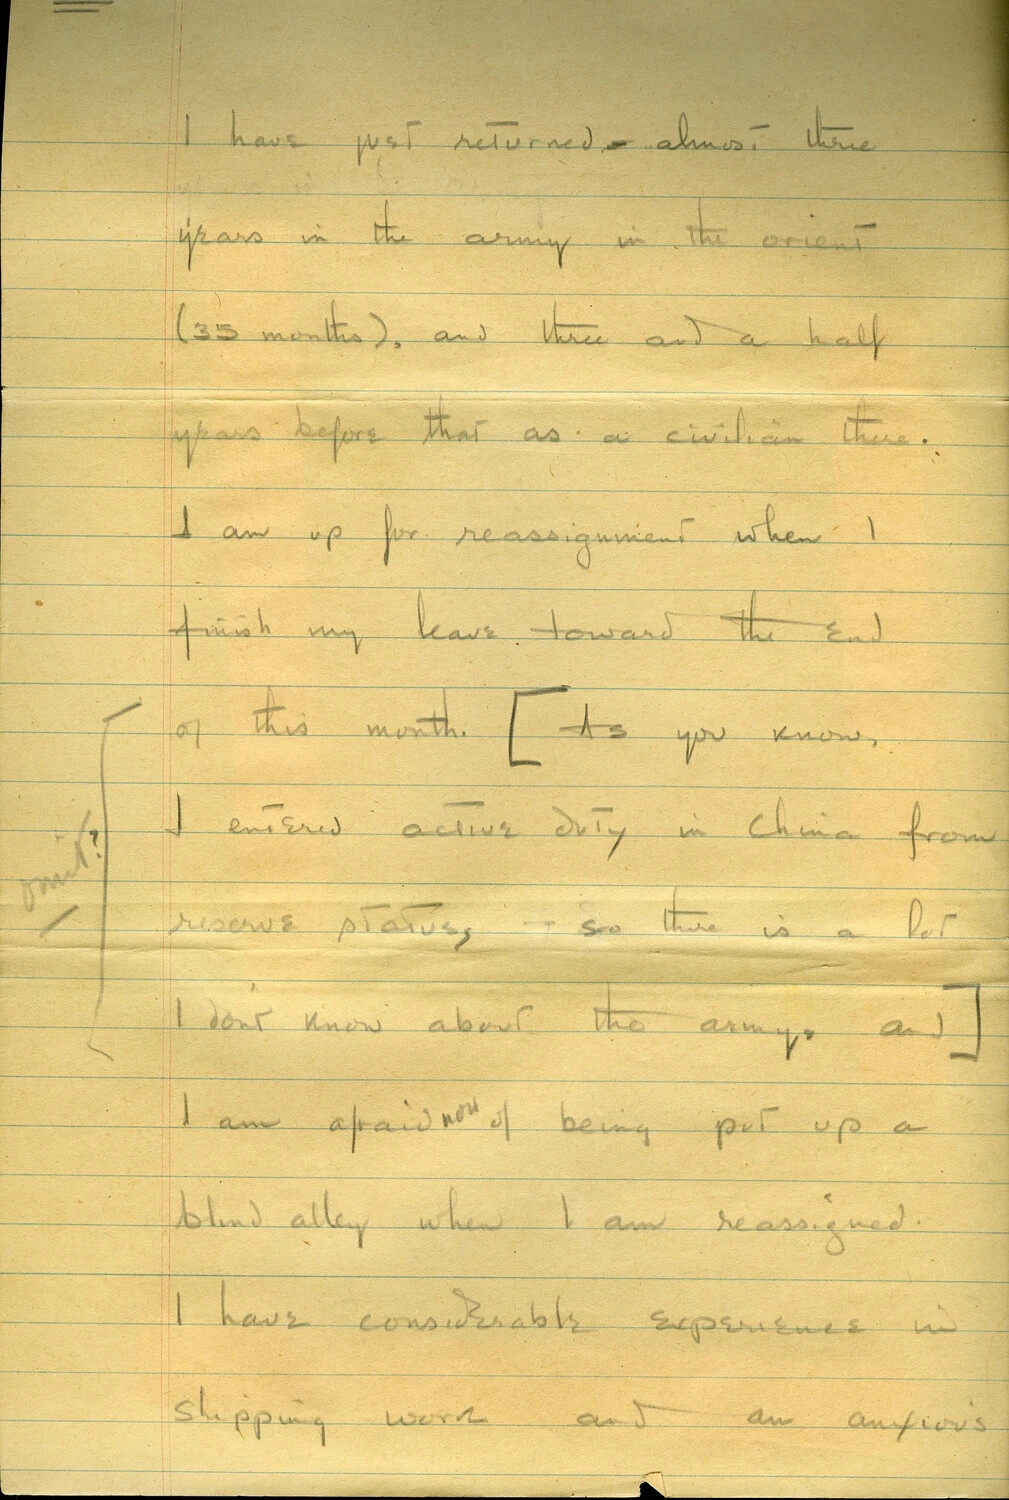 I have just returned - almost three
years in the army in the orient
(35 months), and three and a half
years before that as a civilian there.
I am up for reassignment when I
finish my leave toward the end
of this month. [As you know,
I entered active duty in China from
omit?
reserve status, - so there is a lot
I don't know about the army, and]
I am afraid now of being put up a
blind alley when I am reassigned.
I have considerable experience in
shipping work and am anxious